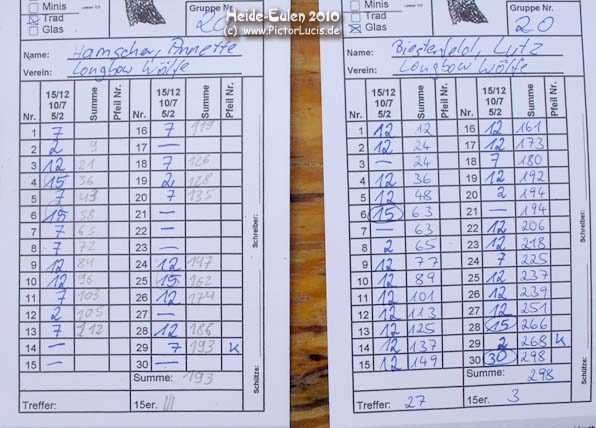 Heide-Eulen 2010
(c) www.PictorLucis.de
Minis
Trad
Glas
Gruppe Nr.
20
Name: Hamscher, Annette
Verein: Longbow Wölfe
Nr. 15/12 10/7 5/2 Summe Pfeil Nr. Nr. 15/12 10/7 5/2 Summe Pfeil Nr.
1 7 16 7 119
2 2 9 17 —
3 12 21 18 7 126
4 15 36 19 2 128
5 7 43 20 7 135
6 15 58 21 —
7 7 65 22 —
8 7 72 23 —
9 12 84 24 12 147
10 12 96 25 15 162
11 7 103 26 12 174
12 2 105 27 —
13 7 112 28 12 186
14 — 29 7 193 K
15 — 30 —
Summe: 193
Treffer: 15er. III
Schreiber:
Schütze:
Minis
Trad
Glas
Gruppe Nr.
20
Name: Biesterfeld, Lutz
Verein: Longbow Wölfe
Nr. 15/12 10/7 5/2 Summe Pfeil Nr. Nr. 15/12 10/7 5/2 Summe Pfeil Nr.
1 12 12 16 12 161
2 12 24 17 12 173
3 — 24 18 7 180
4 12 36 19 12 192
5 12 48 20 2 194
6 15 63 21 — 194
7 — 63 22 12 206
8 2 65 23 12 218
9 12 77 24 7 225
10 12 89 25 12 237
11 12 101 26 12 239
12 12 113 27 12 251
13 12 125 28 15 266
14 12 137 29 2 268 K
15 12 149 30 30 298
Summe: 298
Treffer: 27 15er. 3
Schreiber:
Schütze: